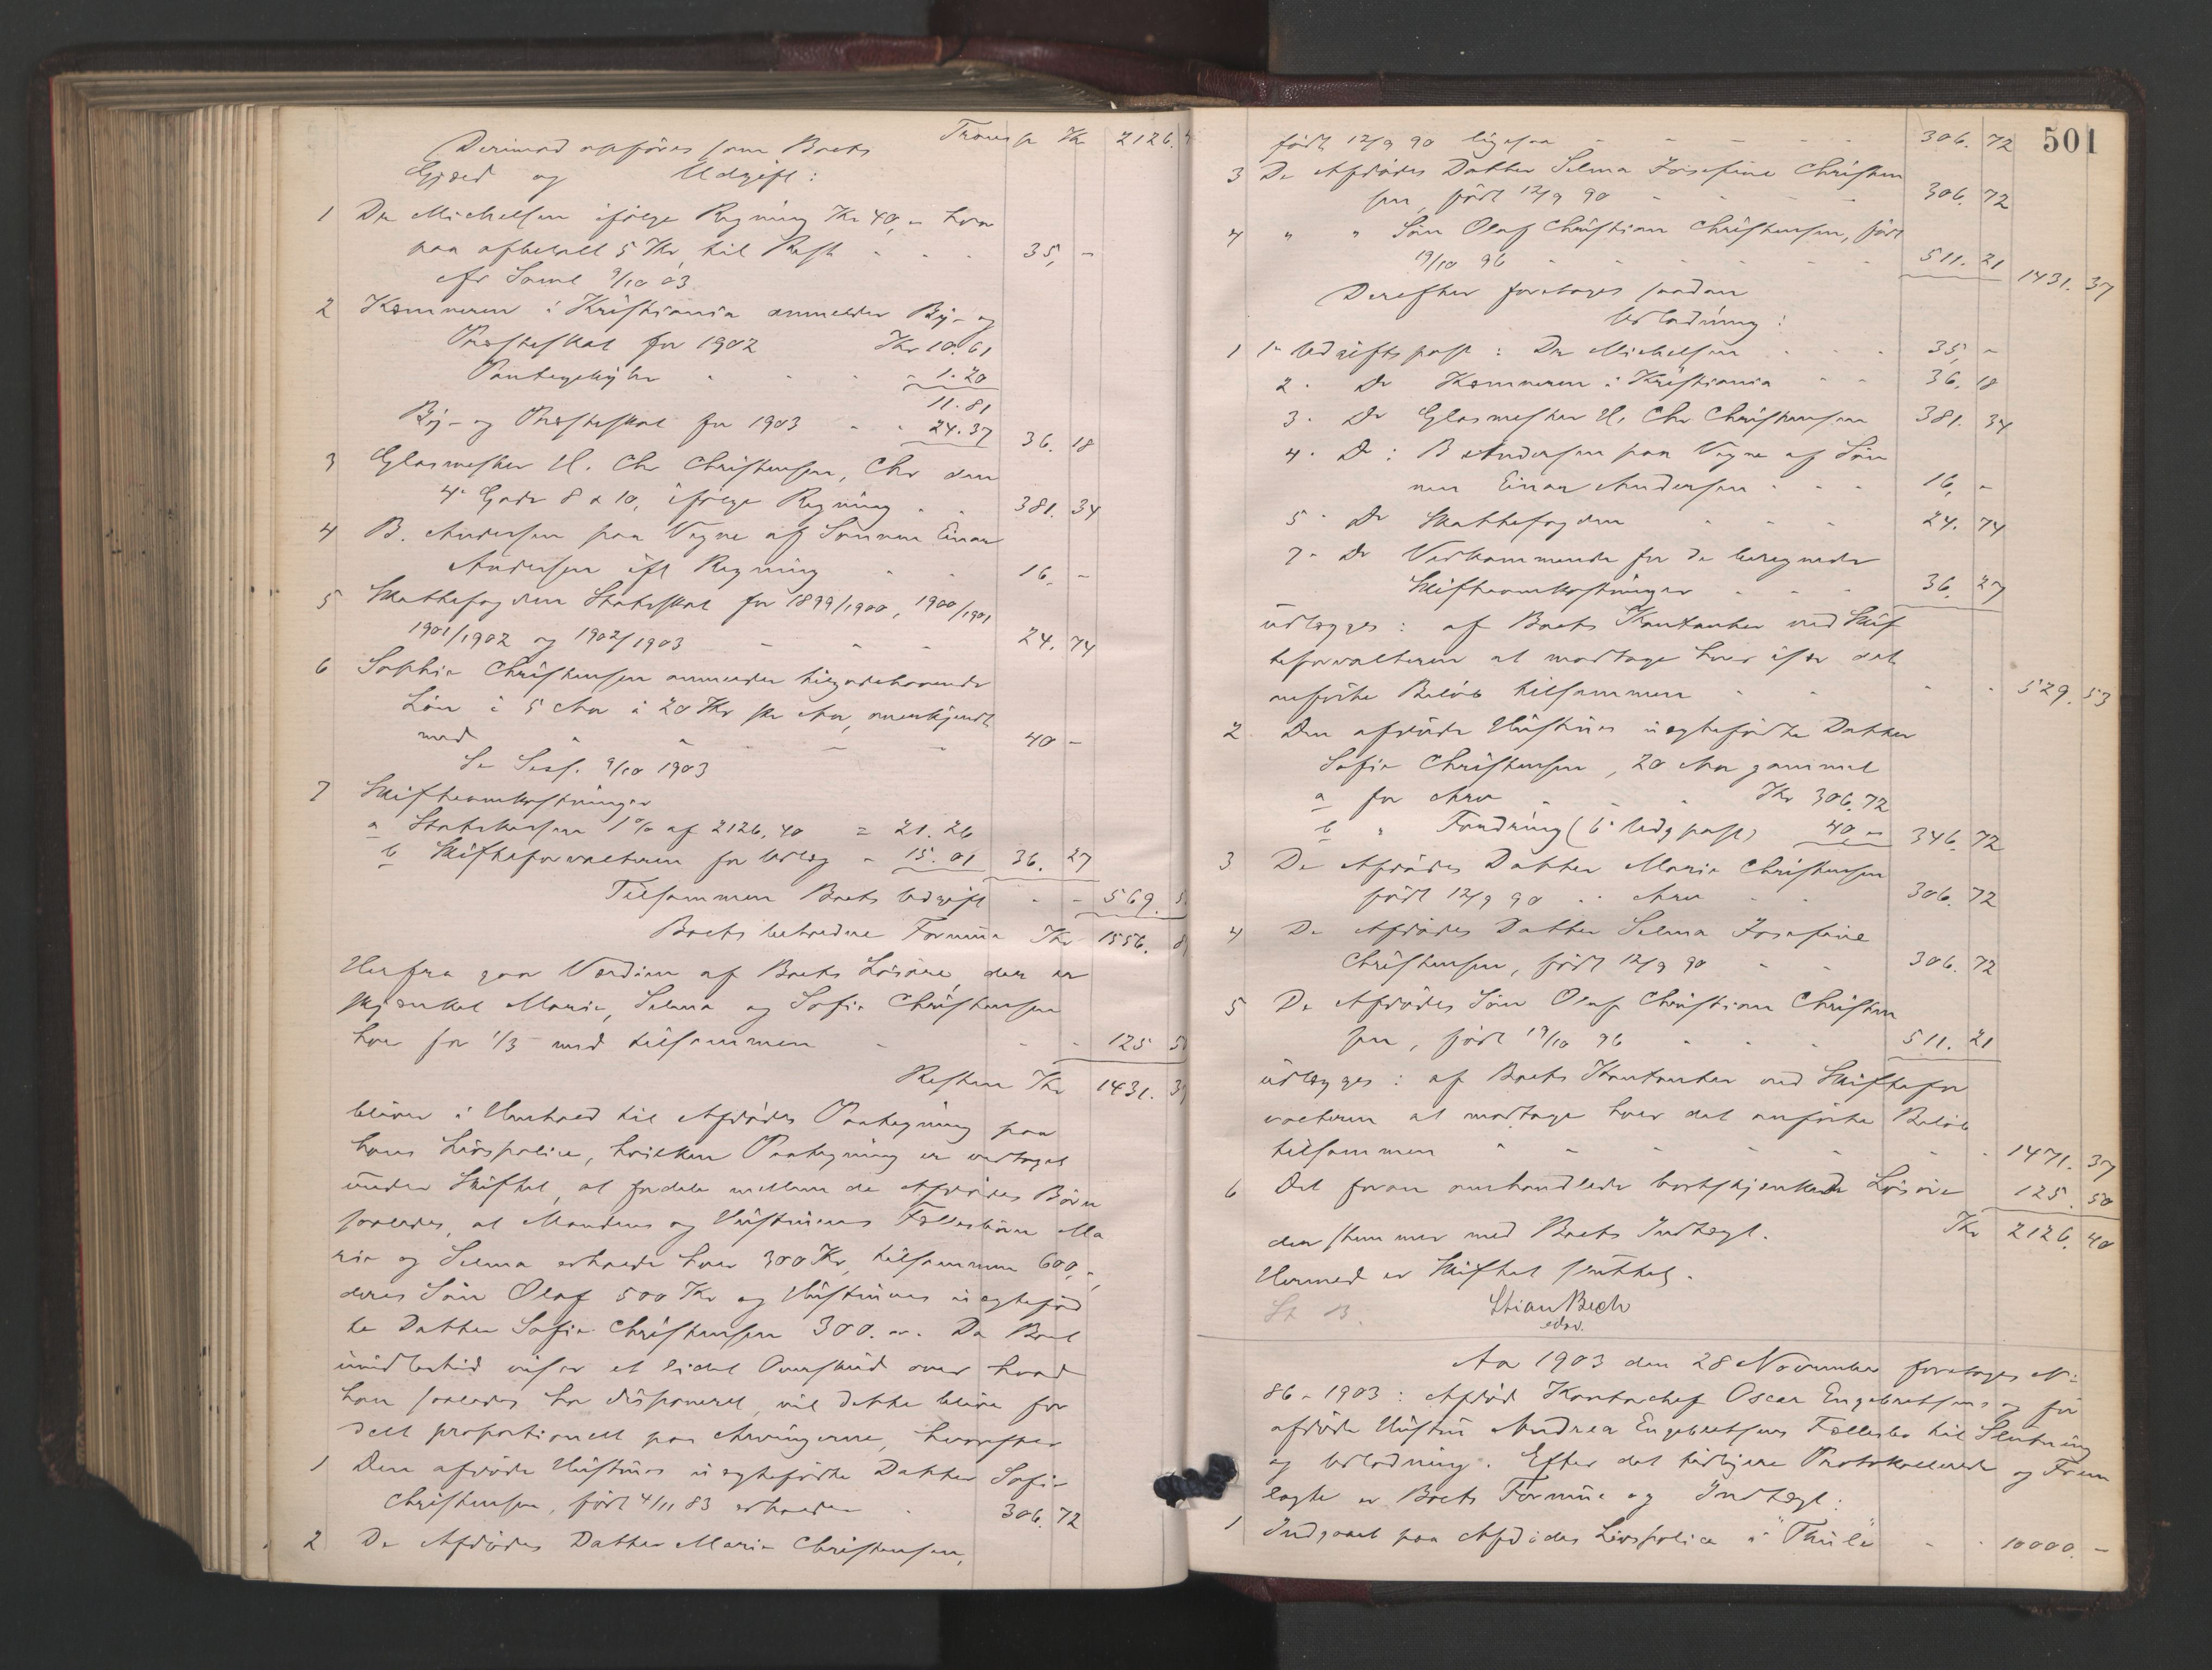 Transp Kr 2126.4
Derimod opføres som Boets
Gjæld og Udgift:
1 Dr Michelsen ifølge Regning Kr 40,- hvor
paa afbetalt 5 Kr, til Rest - - - 35,-
Saml 9/10 03
2 Kæmneren i Kristiania anmelder By- og
Præsteskat for 1902 Kr 10.61
Pantegebyhr - - - 1.20
11.81
By- og Præsteskat for 1903 - - 24.37 36.18
3 Glasmester H. Chr Christensen, Chr den
4' Gade 8 & 10, ifølge Regning - - 381.34
4 B. Andersen paa Vegne af Sønnen Einar
Andersen ifl Regning - - 16,-
5 Skattefogden Statsskat for 1899/1900, 1900/1901
1901/1902 og 1902/1903 - - - 24.74
6 Sophie Christensen anmelder tilgodehavende
Løn i 5 Aar à 20 Kr pr Aar, anerkjendt
med - - - - 40 -
Se Sess. 9/10 1903
7 Skifteomkostninger
a Statskassen 1% af 2126,40 = 21.26
b Skifteforvalteren for Udlæg - 15.01 36.27
Tilsammen Boets Udgift - - 569.5
Boets beholdne Formue Kr 1556.8
Herfra gaar Værdien af Boets Løsøre, der er
skjænket Marie, Selma og Sofie Christensen
hver for 1/3 med tilsammen - - - 125 5
Resten Kr 1431.3
bliver i Henhold til Afdødes Paategning paa
hans Livspolice, hvilken Paategning er vedtaget
under Skiftet, at fordele mellem de Afdødes Børn
saaledes, at Mandens og Hustruens Fællesbørn Ma
rie og Selma erholde hver 300 Kr, tilsammen 600,-,
deres Søn Olaf 500 Kr og Hustruens uægtefød
te Datter Sofie Christensen 300.-. Da Boet
imidlertid viser et lidet Overskud over hvad
han saaledes har disponeret, vil dette blive for
delt proportionelt paa Arvingerne, hvorefter
1 Den afdøde Hustrues uægtefødte Datter Sofie
Christensen, født 4/11 83 erholder - 306.72
2 De Afdødes Datter Marie Christensen,
501
født 12/9 90 ligesaa - - - - - 306.72
3 De Afdødes Datter Selma Josefine Christen
sen, født 12/9 90 - - - - 306.72
4 " " Søn Olaf Christian Christensen, født
19/10 96 - - - - - - 511.21 1431.37
Derefter foretages saadan
Udlodning:
1 1' Udgiftspost: Dr Michelsen - - - 35,-
2' Do Kæmneren i Kristiania - - 36.18
3' Do Glasmester H. Chr Christensen 381.34
4' Do: B Andersen paa Vegne af Søn
nen Einar Andersen - - - 16,-
5' Do Skattefogden - - - 24.74
7' Do Vedkommende for de beregnede
Skifteomkostninger - - - 36.27
udlægges: af Boets Kontanter ved Skif
teforvalteren at modtage hver især det
anførte Beløb tilsammen - - - 529.53
2 Den afdøde Hustrues uægtefødte Datter
Sofie Christensen, 20 Aar gammel
a for Arv - - - Kr 306.72
b " Fordring (6' Udg post) 40 - 346.72
3 De Afdødes Datter Marie Christensen
født 12/9 90 - - Arv - - 306.72
4 De Afdødes Datter Selma Josefine
Christensen, født 12/9 90 - - 306.72
5 De Afdødes Søn Olaf Christian Christen
sen, født 19/10 96 - - - 511.21
udlægges: af Boets Kontanter ved Skiftefor
valteren at modtage hver det anførte Beløb
tilsammen - - - - - - 1471.37
6 Det foran omhandlede bortskjenkede Løsøre 125.50
der stemmer med Boets Indtægt. Kr 2126.40
Hermed er Skiftet sluttet.
St B. Stian Bech
edsv.
Aar 1903 den 28 November foretoges No:
86-1903: Afdød Kontorchef Oscar Engebretsens og før
afdøde Hustru Andrea Engebretsens Fællesbo til Slutning
og Udlodning. Efter det tidligere Protokollerede og Frem
lagte er Boets Formue og Indtægt:
1 Indgaaet paa Afdødes Livspolice i "Thule" - - 10000.-